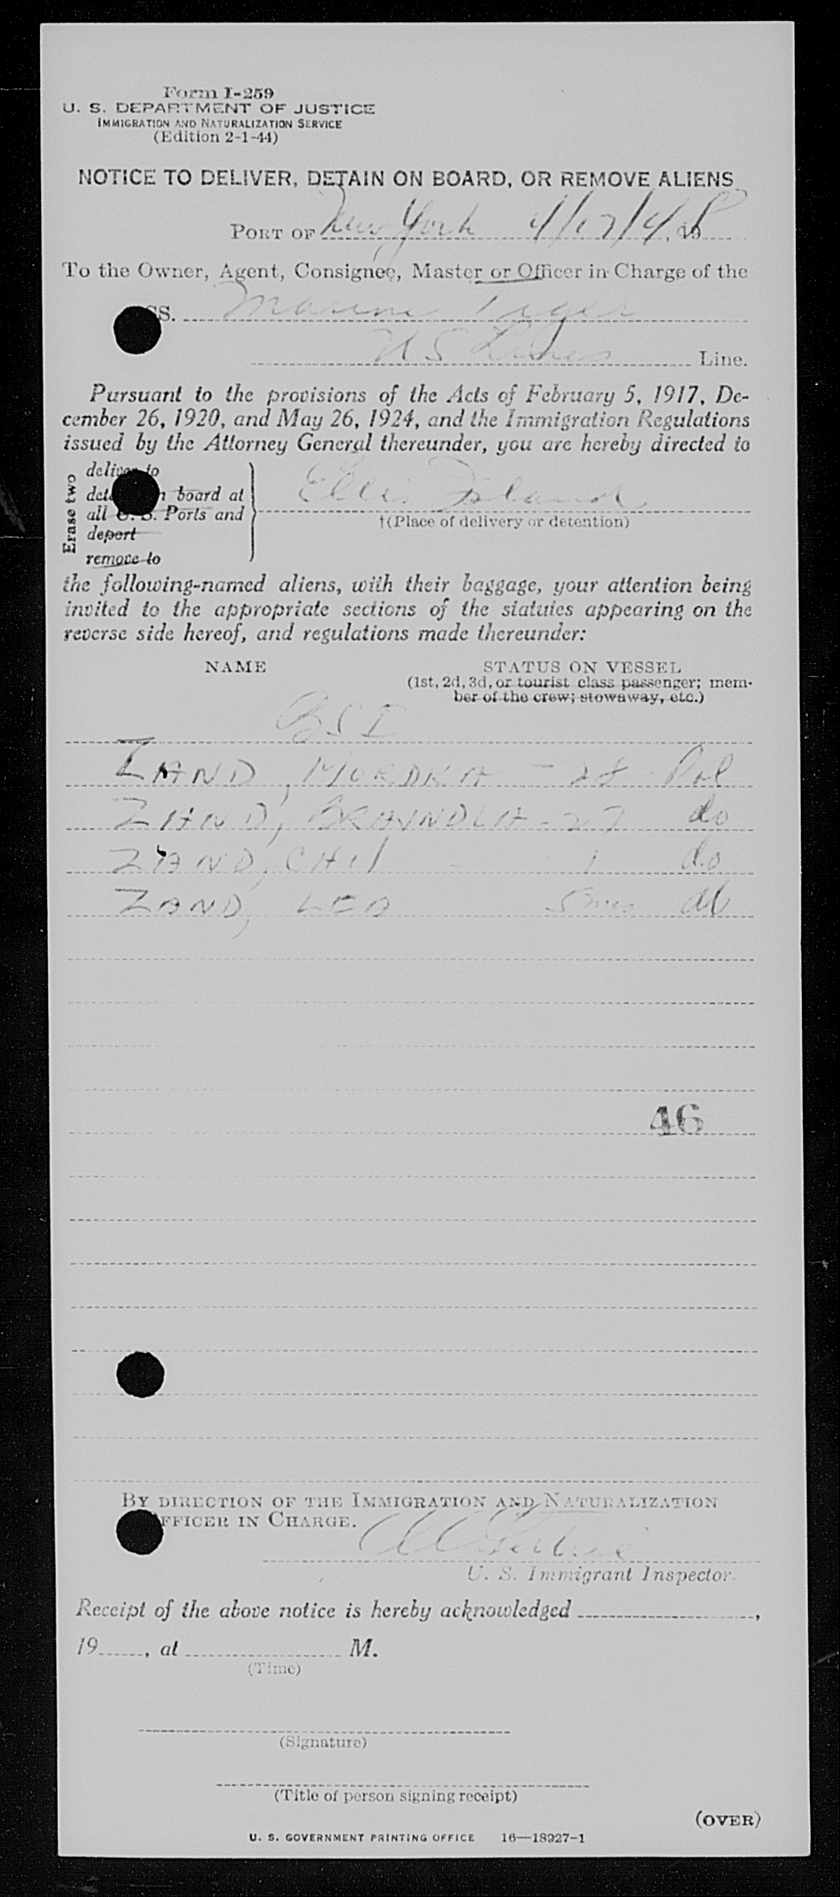 Form I-259
U. S. DEPARTMENT OF JUSTICE
IMMIGRATION AND NATURALIZATION SERVICE
(Edition 2-1-44)
NOTICE TO DELIVER, DETAIN ON BOARD, OR REMOVE ALIENS
PORT OF New York 4/17/48, 19
To the Owner, Agent, Consignee, Master or Officer in Charge of the
SS. Marine Tiger
US Lines Line.
Pursuant to the provisions of the Acts of February 5, 1917, De-
cember 26, 1920, and May 26, 1924, and the Immigration Regulations
issued by the Attorney General thereunder, you are hereby directed to
Erase two
deliver to
detain on board at
all U. S. Ports and
deport
remove to
Ellis Island
†(Place of delivery or detention)
the following-named aliens, with their baggage, your attention being
invited to the appropriate sections of the statutes appearing on the
reverse side hereof, and regulations made thereunder:
NAME STATUS ON VESSEL
(1st, 2d, 3d, or tourist class passenger; mem-
ber of the crew; stowaway, etc.)
BSI
ZAND, MORDKA - 28 Pol
ZAND, BRAJNDLA - 27 do
ZAND, CHIL - 1 do
ZAND, LEA 5 mos do
46
BY DIRECTION OF THE IMMIGRATION AND NATURALIZATION
OFFICER IN CHARGE.
U. S. Immigrant Inspector.
Receipt of the above notice is hereby acknowledged ,
19 , at M.
(Time)
(Signature)
(Title of person signing receipt)
(OVER)
U. S. GOVERNMENT PRINTING OFFICE 16—18927-1